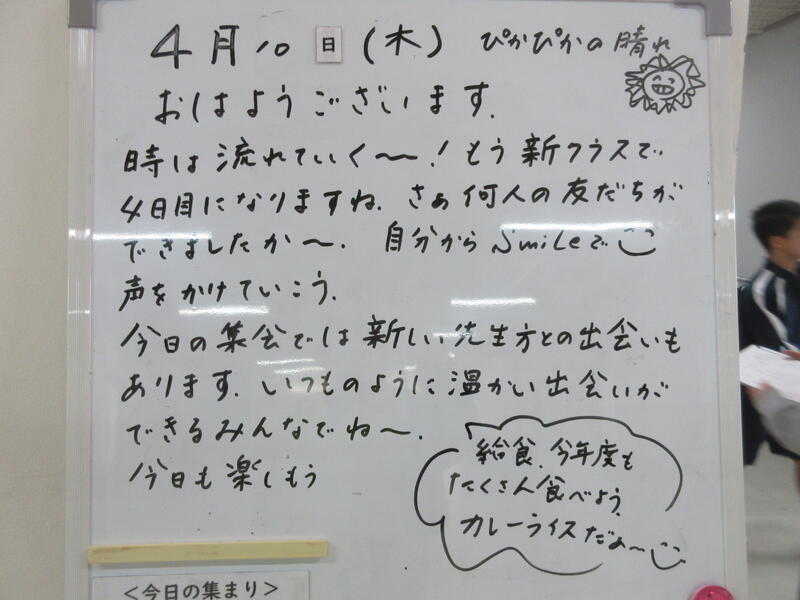 4月10日(木) ぴかぴかの晴れ
おはようございます.
時は流れていく〜!もう新クラスで
4日目になりますね.さぁ何人の友だちが
できましたか〜. 自分からSmileで
声をかけていこう.
今日の集会では新しい先生方との出会いも
あります.いつものように温かい出会いが
できるみんなでね〜.
今日も楽しもう
給食、今年度も
たくさん食べよう.
カレーライスだよ〜
<今日の集まり>